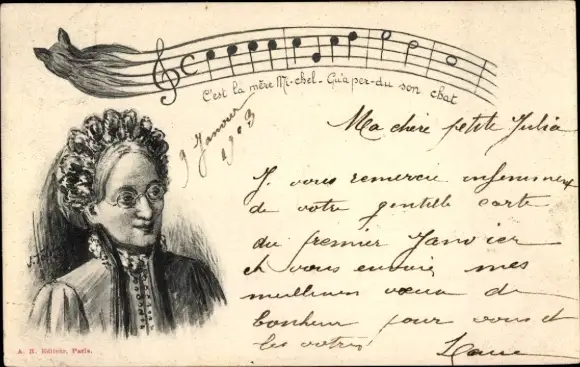 C'est la mère Mi-chel - Qu'a per-du son chat
9 Janvier
1903
Ma chère petite Julia
Je vous remercie infiniment
de votre gentille carte
du premier Janvier
et vous envoie, mes
meilleurs vœux de
bonheur pour vous et
les votres
A. H. Editeur, Paris.